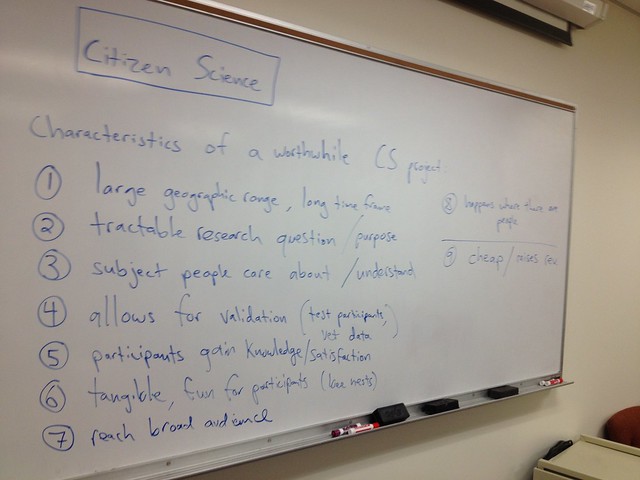 Citizen Science
Characteristics of a worthwhile CS project
① large geographic range, long time frame
② tractable research question / purpose
③ subject people care about / understand
④ allows for validation (test participants,
vet data)
⑤ participants gain knowledge/satisfaction
⑥ tangible, fun for participants (bee nests)
⑦ reach broad audience
⑧ happens where there are
people
⑨ cheap/raises